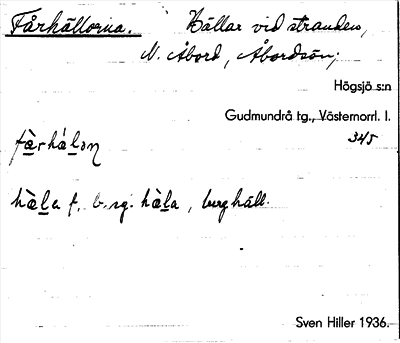 Fårhällorna. Hällar vid stranden,
N. Åbord, Åbordsön;
Högsjö s:n
Gudmundrå tg., Västernorrl. l.
345
fàrháḷon
hàḷa f. b. sg. hàḷa, berghäll.
Sven Hiller 1936.